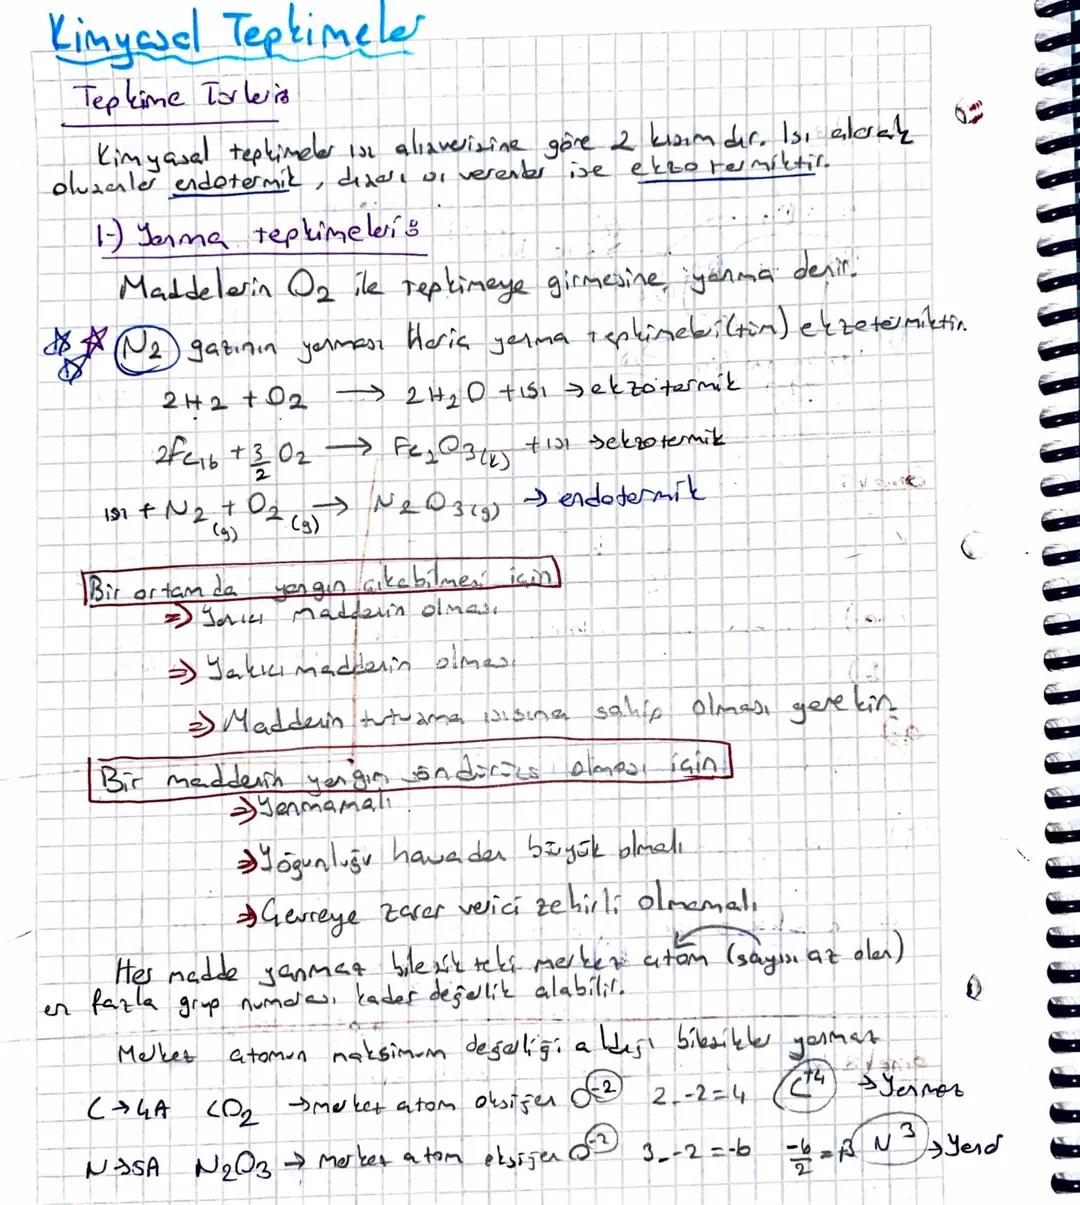 Kimyasal Tepkimeler
Tepkime Türleri:
Kimyasal tepkimeler ısı alışverişine göre 2 kısımdır. Isı alarak
oluşanlar endotermik, dışarı ısı verenler ise ekzotermiktir.
1-) Yanma tepkimeleri:
Maddelerin O2 ile tepkimeye girmesine yanma denir.
N2 gazının yanması Hariç yanma tepkimeleri (tüm) ekzotermiktir.
2H2 + O2 → 2H2O + ısı → ekzotermik
2Fe(k) + 3/2 O2 → Fe2O3(k) + ısı → ekzotermik
ısı + N2(g) + O2(g) → N2O3(g) → endotermik
Bir ortamda yangın çıkabilmesi için
⇒ Yanıcı maddenin olması
⇒ Yakıcı maddenin olması
⇒ Maddenin tutuşma ısısına sahip olması gerekir
Bir maddenin yangın söndürücü olması için
⇒ Yanmamalı
⇒ Yoğunluğu havadan büyük olmalı
⇒ Çevreye zarar verici zehirli olmamalı
Her madde yanmaz bileşikteki merkez atom (sayısı az olan)
en fazla grup numarası kadar değerlik alabilir.
Merkez atomun maksimum değerliği aldığı bileşikler yanmaz
C → 4A CO2 → merkez atom oksijen O-2 2.-2=4 C+4 → Yanmaz
N → 5A N2O3 → merkez atom oksijen O-2 3.-2=-6 -6/2=-3 N3 → Yanar